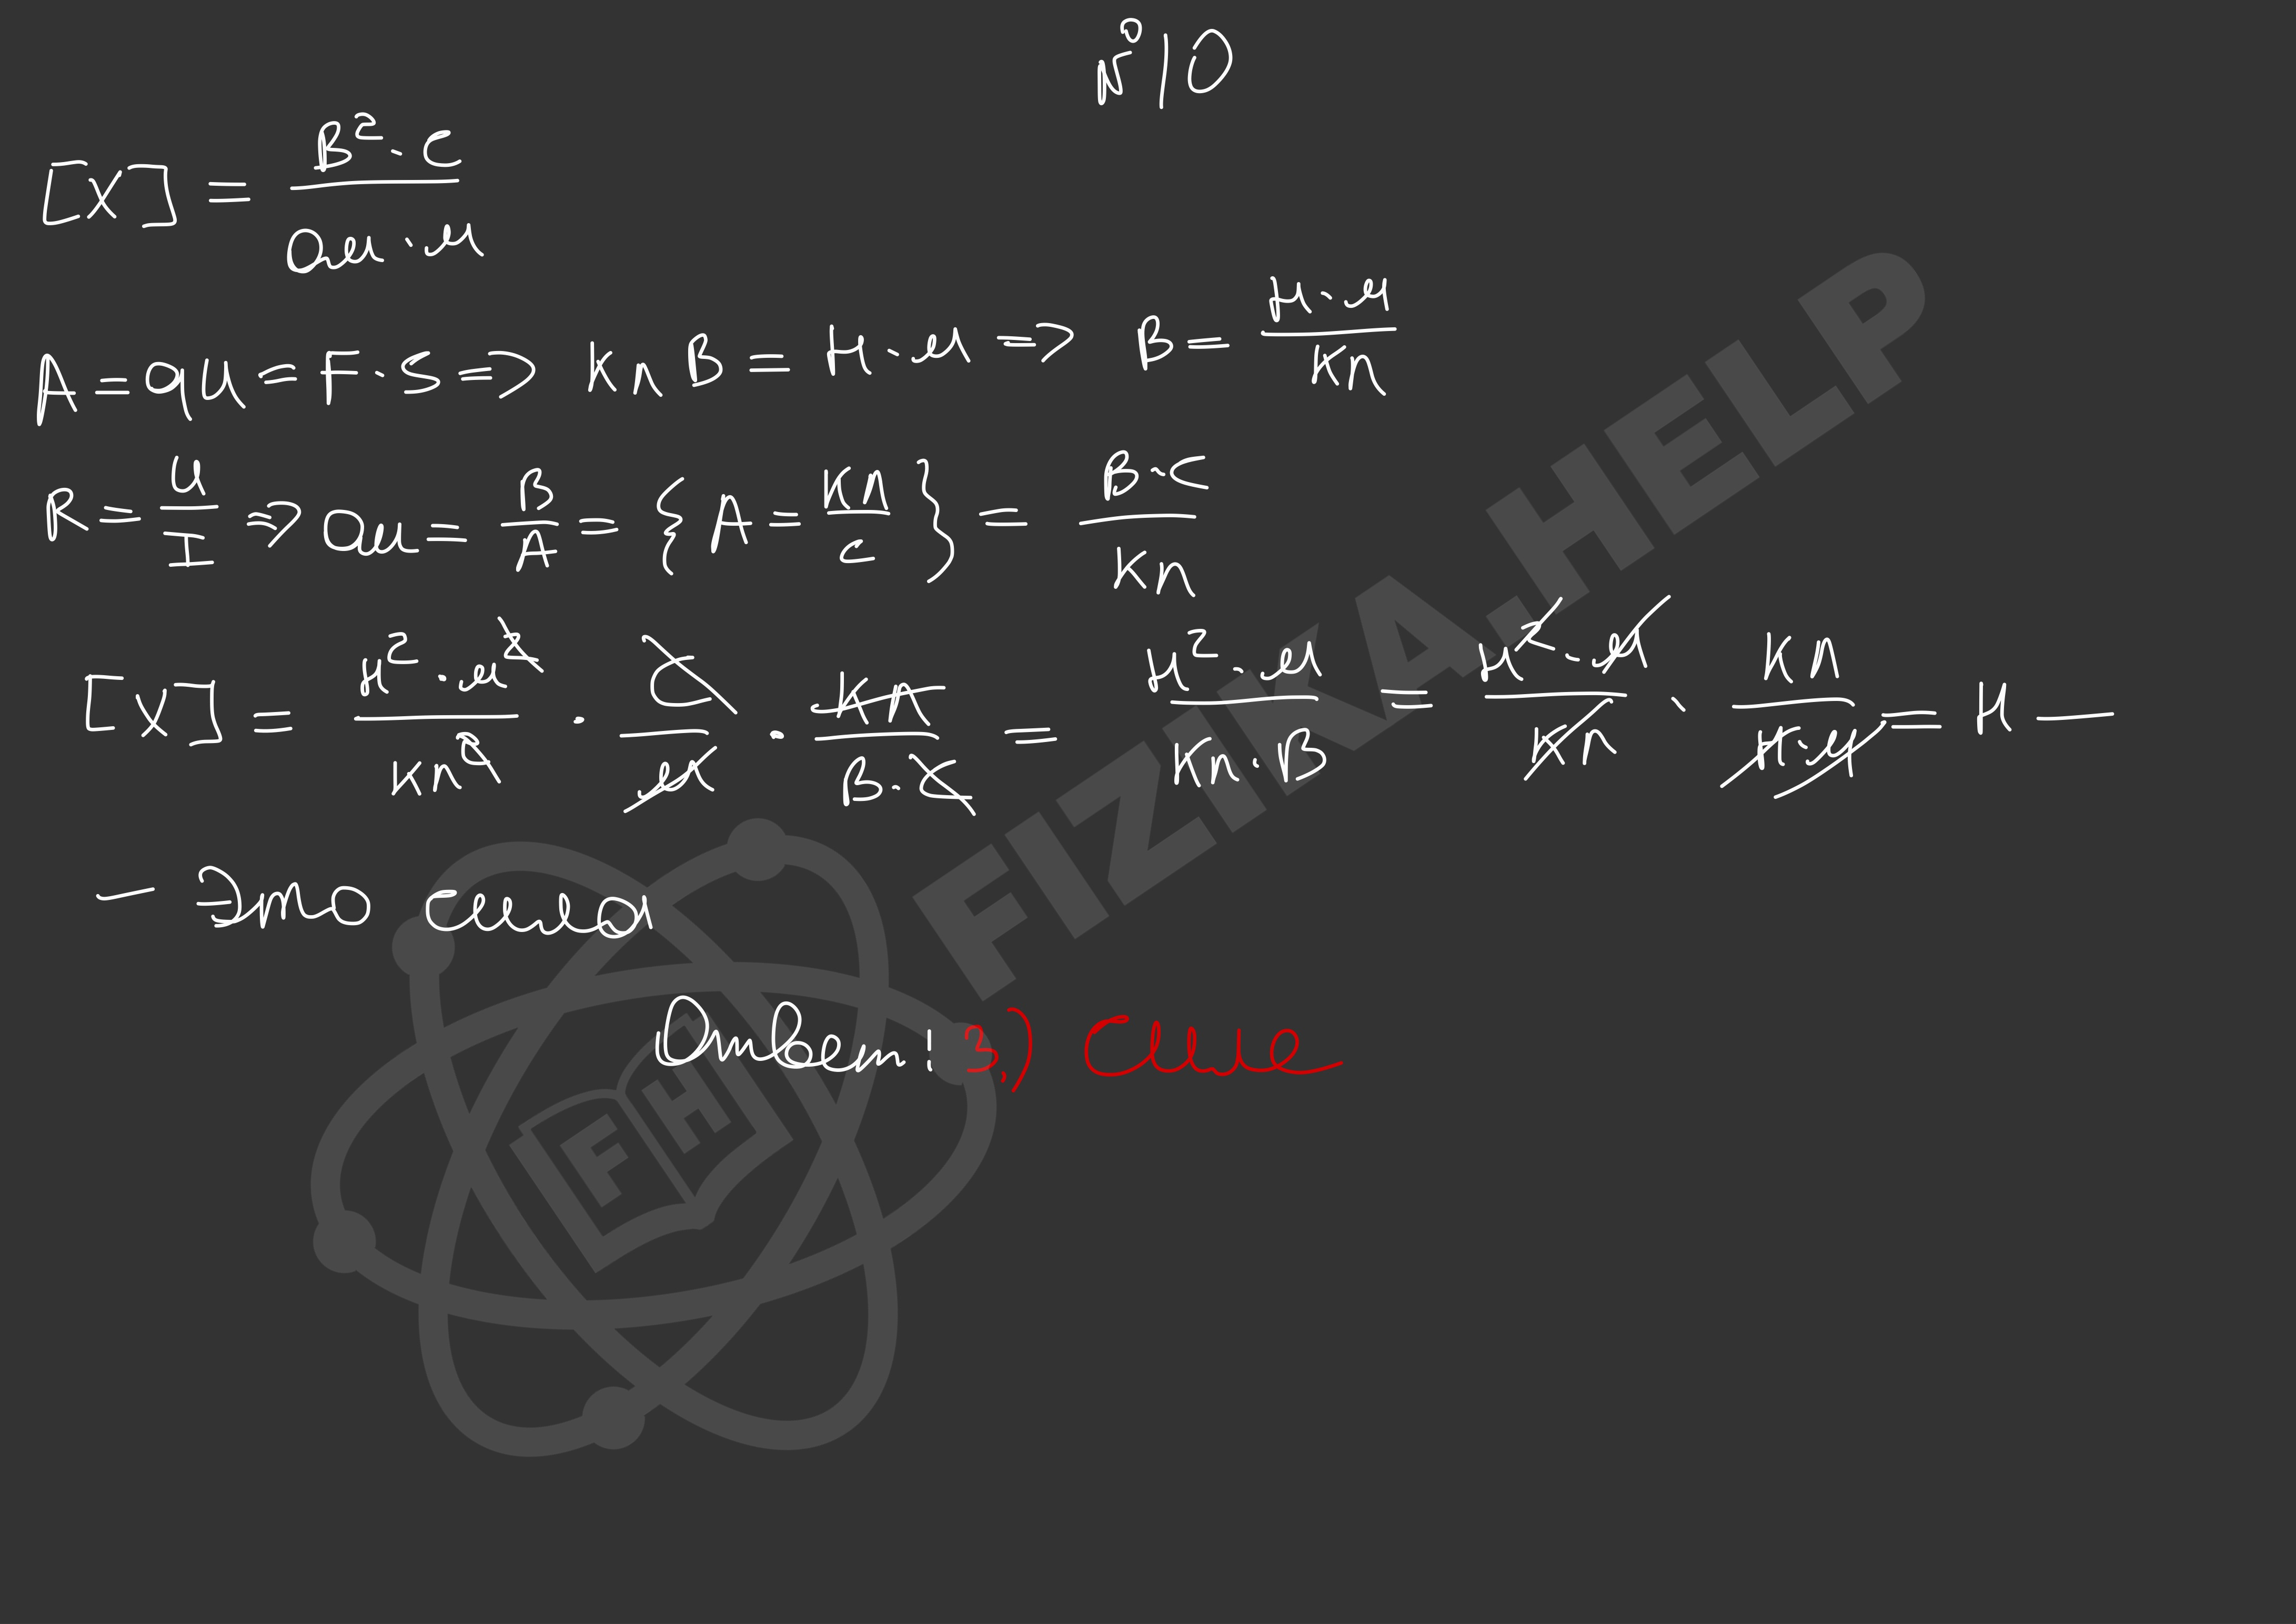 №10
[X] = В²·с / Ом·м
A = qU = F·S => Кл В = Н·м => В = Н·м / Кл
R = U / I => Ом = В / А = {А = Кл / с} = В·с / Кл
[X] = Н²·м² / Кл² · с / м · Кл / В·с = Н²·м / Кл·В = Н²·м / Кл · Кл / Н·м = Н —
— Это сила
Ответ: 3.) Силе
FIZIKA.HELP
FH